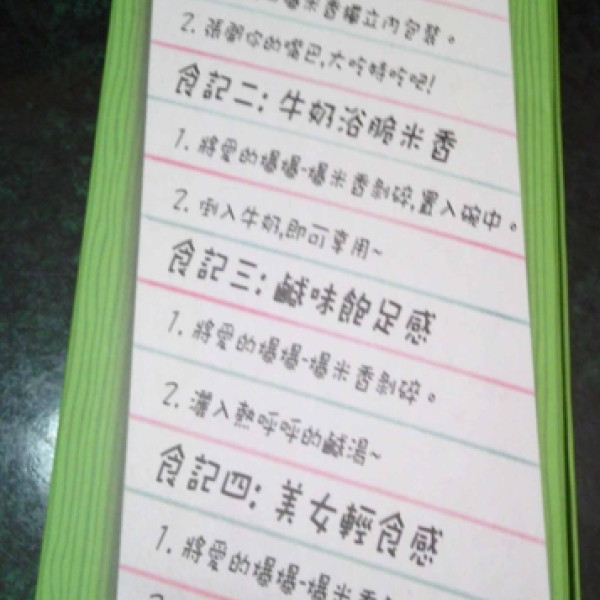 爆米香獨立內包裝。
2. 張開你的嘴巴,大吃特吃吧!
食記二: 牛奶浴脆米香
1. 將愛的爆爆-爆米香剝碎,置入碗中。
2. 倒入牛奶,即可享用~
食記三: 鹹味飽足感
1. 將愛的爆爆-爆米香剝碎。
2. 灌入熱呼呼的鹹湯~
食記四: 美女輕食感
1. 將愛的爆爆-爆米香剝